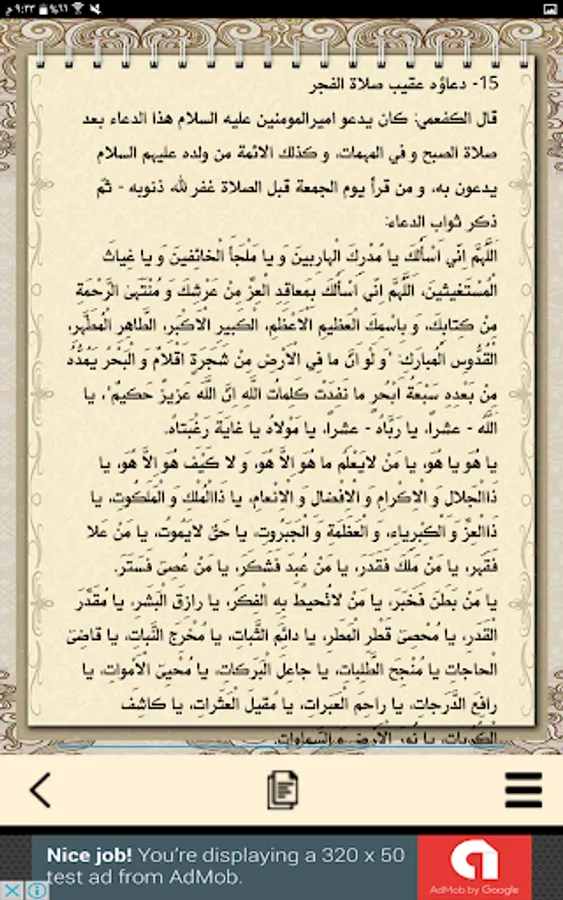 ٩:٢٣ م
%٦٦
15- دعاؤه عقيب صلاة الفجر
قال الكفعمي: كان يدعو اميرالمومنين عليه السلام هذا الدعاء بعد
صلاة الصبح و في المهمات، و كذلك الائمة من ولده عليهم السلام
يدعون به، و من قرأ يوم الجمعة قبل الصلاة غفر لله ذنوبه - ثمّ
ذكر ثواب الدعاء:
اَللَّهُمَّ اِنّي اَسْأَلُكَ يا مُدْرِكَ الْهارِبينَ وَ يا مَلْجَأَ الْخائِفينَ وَ يا غِياثَ
الْمُسْتَغيثينَ، اَللَّهُمَّ اِنّي اَسْأَلُكَ بِمَعاقِدِ الْعِزِّ مِنْ عَرْشِكَ وَ مُنْتَهَى الرَّحْمَةِ
مِنْ كِتابِكَ، وَ بِاسْمِكَ الْعَظيمِ الْاَعْظَمِ، الْكَبيرِ الْاَكْبَرِ، الطَّاهِرِ الْمُطَهَّرِ،
الْقُدُّوسِ الْمُبارَكِ: "وَ لَوْ اَنَّ ما فِي الْاَرْضِ مِنْ شَجَرَةٍ اَقْلامٌ وَ الْبَحْرُ يَمُدُّهُ
مِنْ بَعْدِهِ سَبْعَةُ اَبْحُرٍ ما نَفِدَتْ كَلِماتُ اللَّهِ اِنَّ اللَّهَ عَزيزٌ حَكيمٌ"، يا
اَللَّهُ - عشراً، يا رَبَّاهُ - عشراً، يا مَوْلاهُ يا غايَةَ رَغْبَتاهُ.
يا هُوَ يا هُوَ، يا مَنْ لايَعْلَمُ ما هُوَ اِلاَّ هُوَ، وَ لا كَيْفَ هُوَ اِلاَّ هُوَ، يا
ذَاالْجَلالِ وَ الْاِكْرامِ وَ الْاِفْضالِ وَ الْاِنْعامِ، يا ذَاالْمُلْكِ وَ الْمَلَكُوتِ، يا
ذَاالْعِزِّ وَ الْكِبْرِياءِ، وَ الْعَظَمَةِ وَ الْجَبَرُوتِ، يا حَىُّ لايَمُوتُ، يا مَنْ عَلا
فَقَهَرَ، يا مَنْ مَلَكَ فَقَدَرَ، يا مَنْ عُبِدَ فَشَكَرَ، يا مَنْ عُصِىَ فَسَتَرَ.
يا مَنْ بَطَنَ فَخَبَرَ، يا مَنْ لاتُحيطُ بِهِ الْفِكَرُ، يا رازِقَ الْبَشَرِ، يا مُقَدِّرَ
الْقَدَرِ، يا مُحْصِىَ قَطْرِ الْمَطَرِ، يا دائِمَ الثَّباتِ، يا مُخْرِجَ النَّباتِ، يا قاضِىَ
الْحاجاتِ يا مُنْجِحَ الطَّلِباتِ، يا جاعِلَ الْبَرَكاتِ، يا مُحْيِىَ الْاَمْواتِ، يا
رافِعَ الدَّرَجاتِ، يا راحِمَ الْعَبَراتِ، يا مُقيلَ الْعَثَراتِ، يا كاشِفَ
الْكُرُباتِ، يا نُورَ الْاَرْضِ وَ السَّماواتِ.
Nice job! You're displaying a 320 x 50
test ad from AdMob.
AdMob by Google